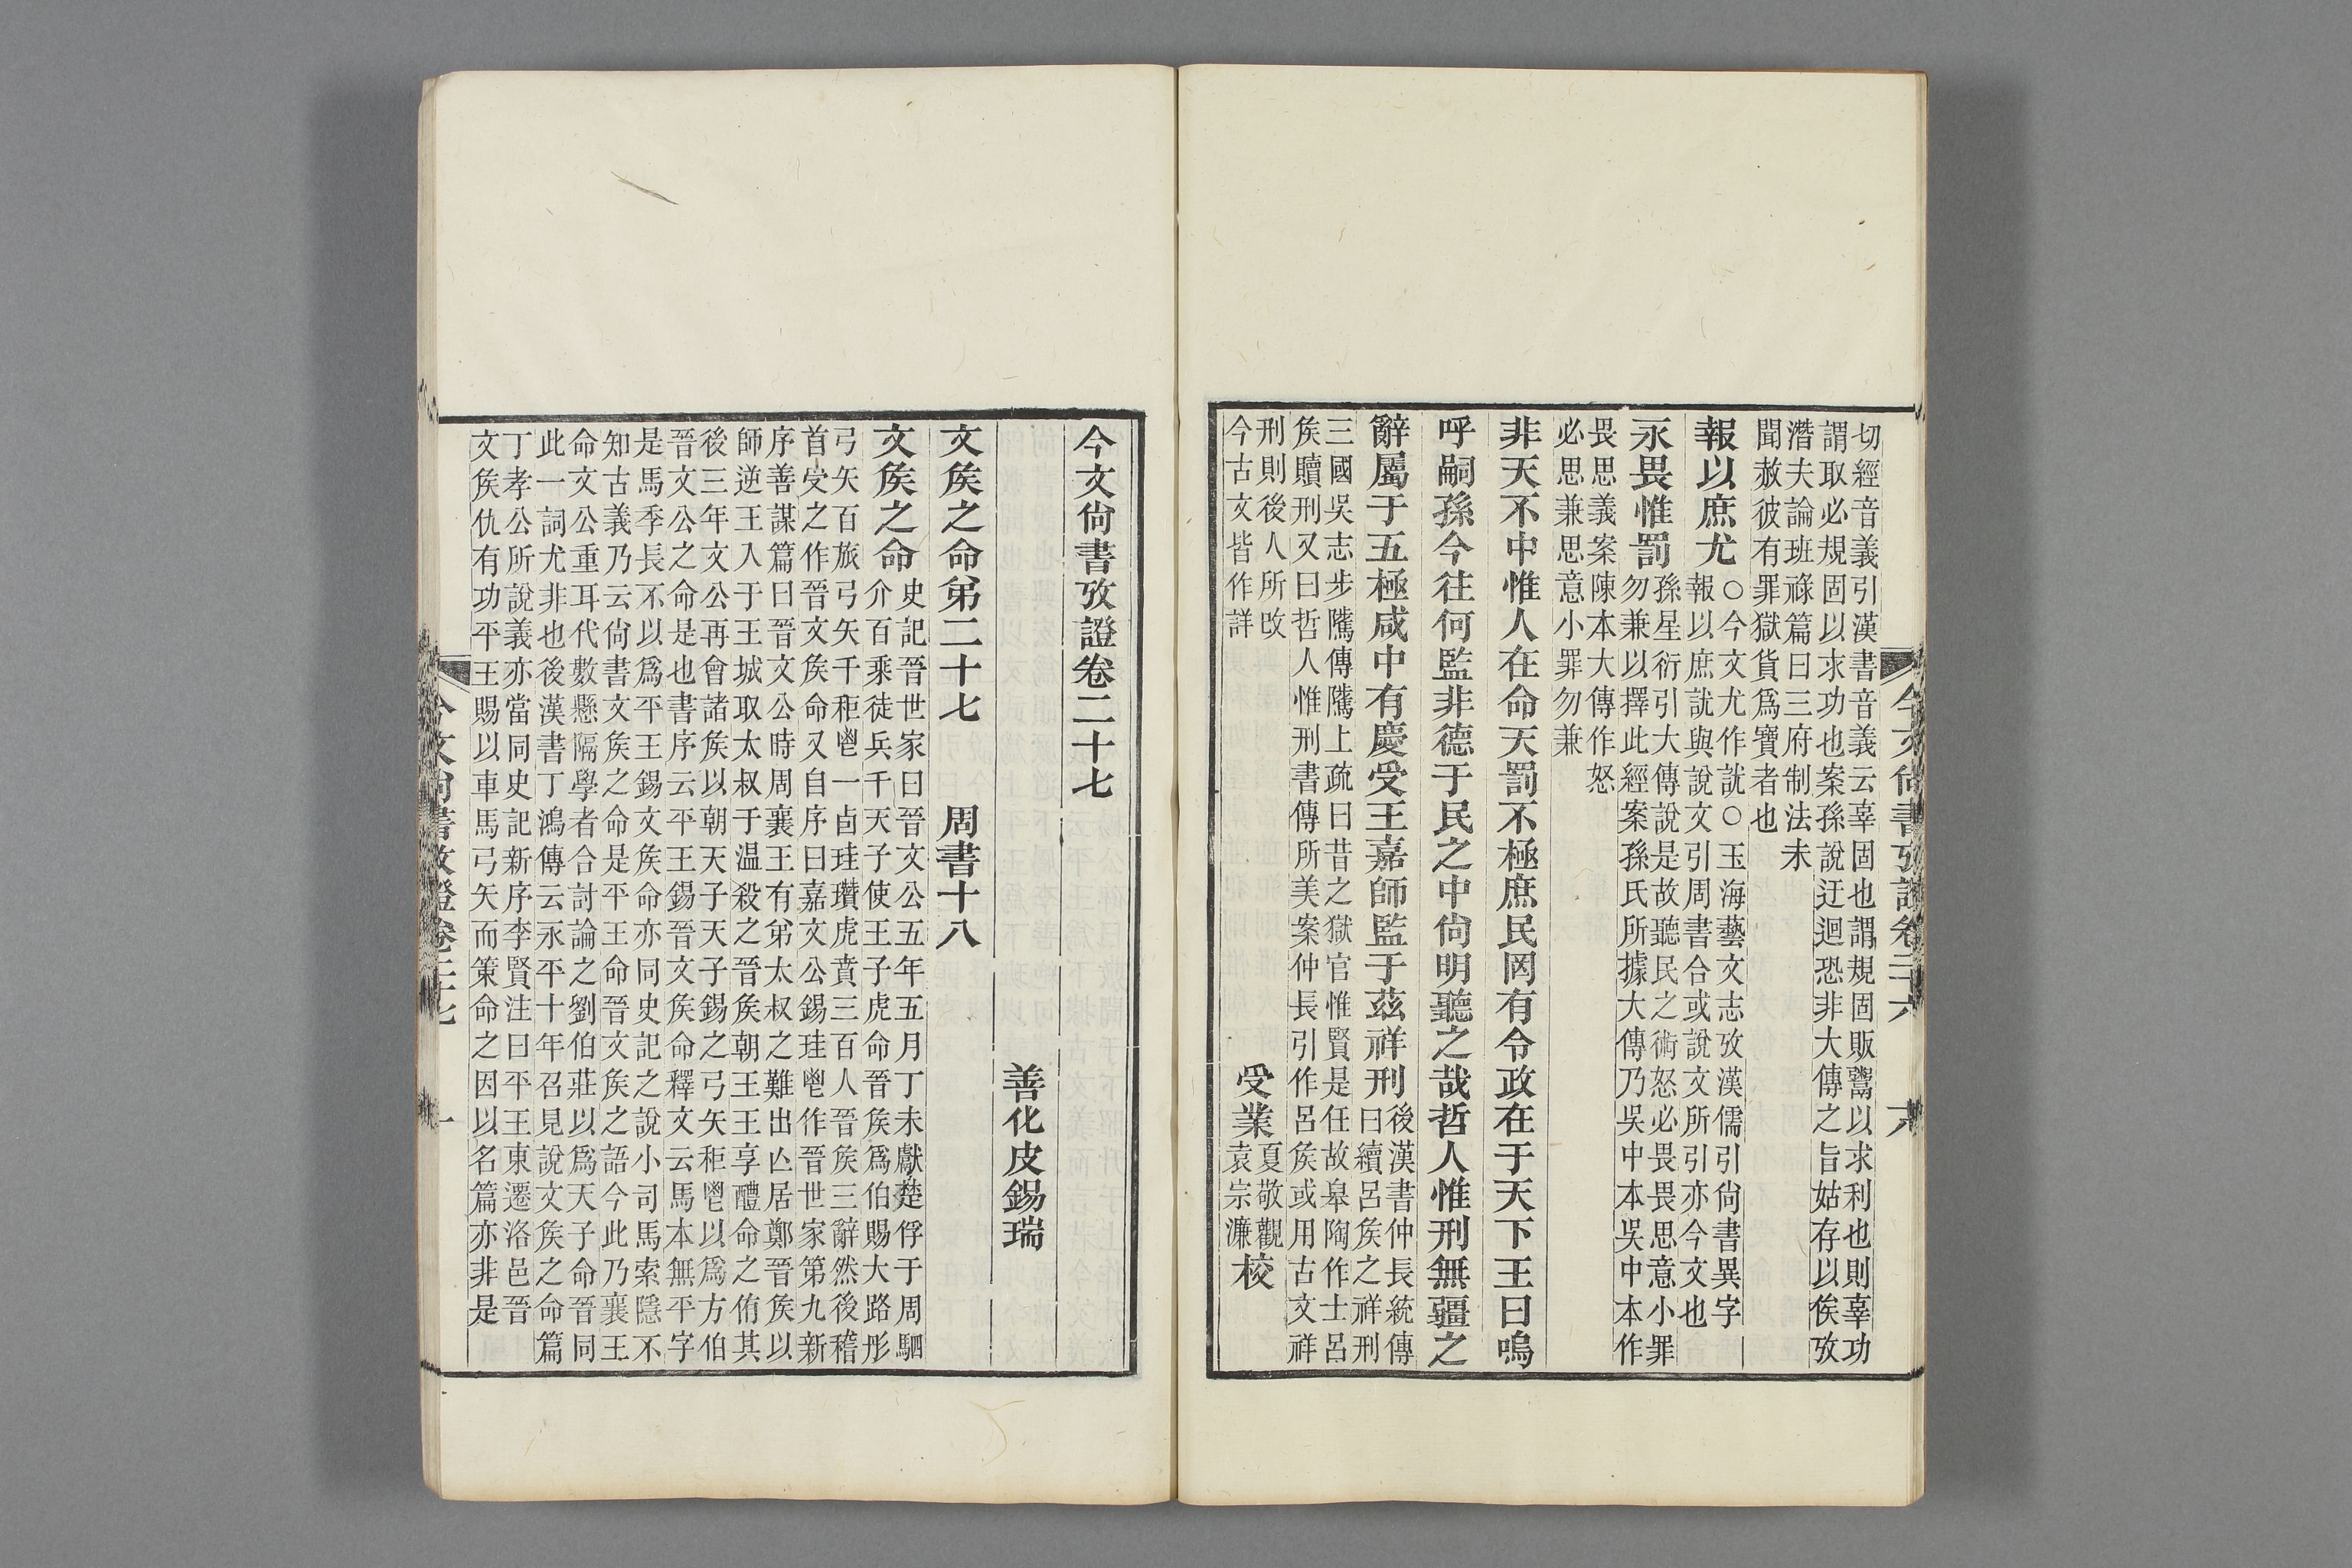 切經音義引漢書音義云辜固也謂規固販鬻以求利也則辜功
謂取必規固以求功也案孫說迂迴恐非大傳之旨姑存以俟攷
潛夫論班祿篇曰三府制法未
聞赦彼有罪獄貨爲寶者也
報以庶尤
○今文尤作訧○玉海藝文志攷漢儒引尙書異字
報以庶訧與說文引周書合或說文所引亦今文也
永畏惟罰
孫星衍引大傳說是故聽民之術怒必畏畏思意小罪
勿兼以擇此經案孫氏所據大傳乃吳中本吳中本作
畏思義案陳本大傳作怒
必思兼思意小罪勿兼
非天不中惟人在命天罰不極庶民罔有令政在于天下王曰嗚
呼嗣孫今往何監非德于民之中尙明聽之哉哲人惟刑無疆之
辭屬于五極咸中有慶受王嘉師監于茲祥刑
後漢書仲長統傳
曰續呂矦之祥刑
三國吳志步隲傳隲上疏曰昔之獄官惟賢是任故皋陶作士呂
矦贖刑又曰哲人惟刑書傳所美案仲長引作呂矦或用古文祥
刑則後人所改
今古文皆作詳
受業
夏敬觀
袁宗濂
校
今文尙書攷證卷二十六
今文尙書攷證卷二十七
善化皮錫瑞
文矦之命弟二十七 周書十八
文矦之命
史記晉世家曰晉文公五年五月丁未獻楚俘于周駟
介百乘徒兵千天子使王子虎命晉矦爲伯賜大路彤
弓矢百旅弓矢千秬鬯一卣珪瓚虎賁三百人晉矦三辭然後稽
首受之作晉文矦命又自序曰嘉文公錫珪鬯作晉世家第九新
序善謀篇曰晉文公時周襄王有弟太叔之難出亾居鄭晉矦以
師逆王入于王城取太叔于温殺之晉矦朝王王享醴命之侑其
後三年文公再會諸矦以朝天子天子錫之弓矢秬鬯以爲方伯
晉文公之命是也書序云平王錫晉文矦命釋文云馬本無平字
是馬季長不以爲平王錫文矦命亦同史記之說小司馬索隱不
知古義乃云尙書文矦之命是平王命晉文矦之語今此乃襄王
命文公重耳代數懸隔學者合討論之劉伯莊以爲天子命晉同
此一詞尤非也後漢書丁鴻傳云永平十年召見說文矦之命篇
丁孝公所說義亦當同史記新序李賢注曰平王東遷洛邑晉
文矦仇有功平王賜以車馬弓矢而策命之因以名篇亦非是
今文尙書攷證卷二十七
一